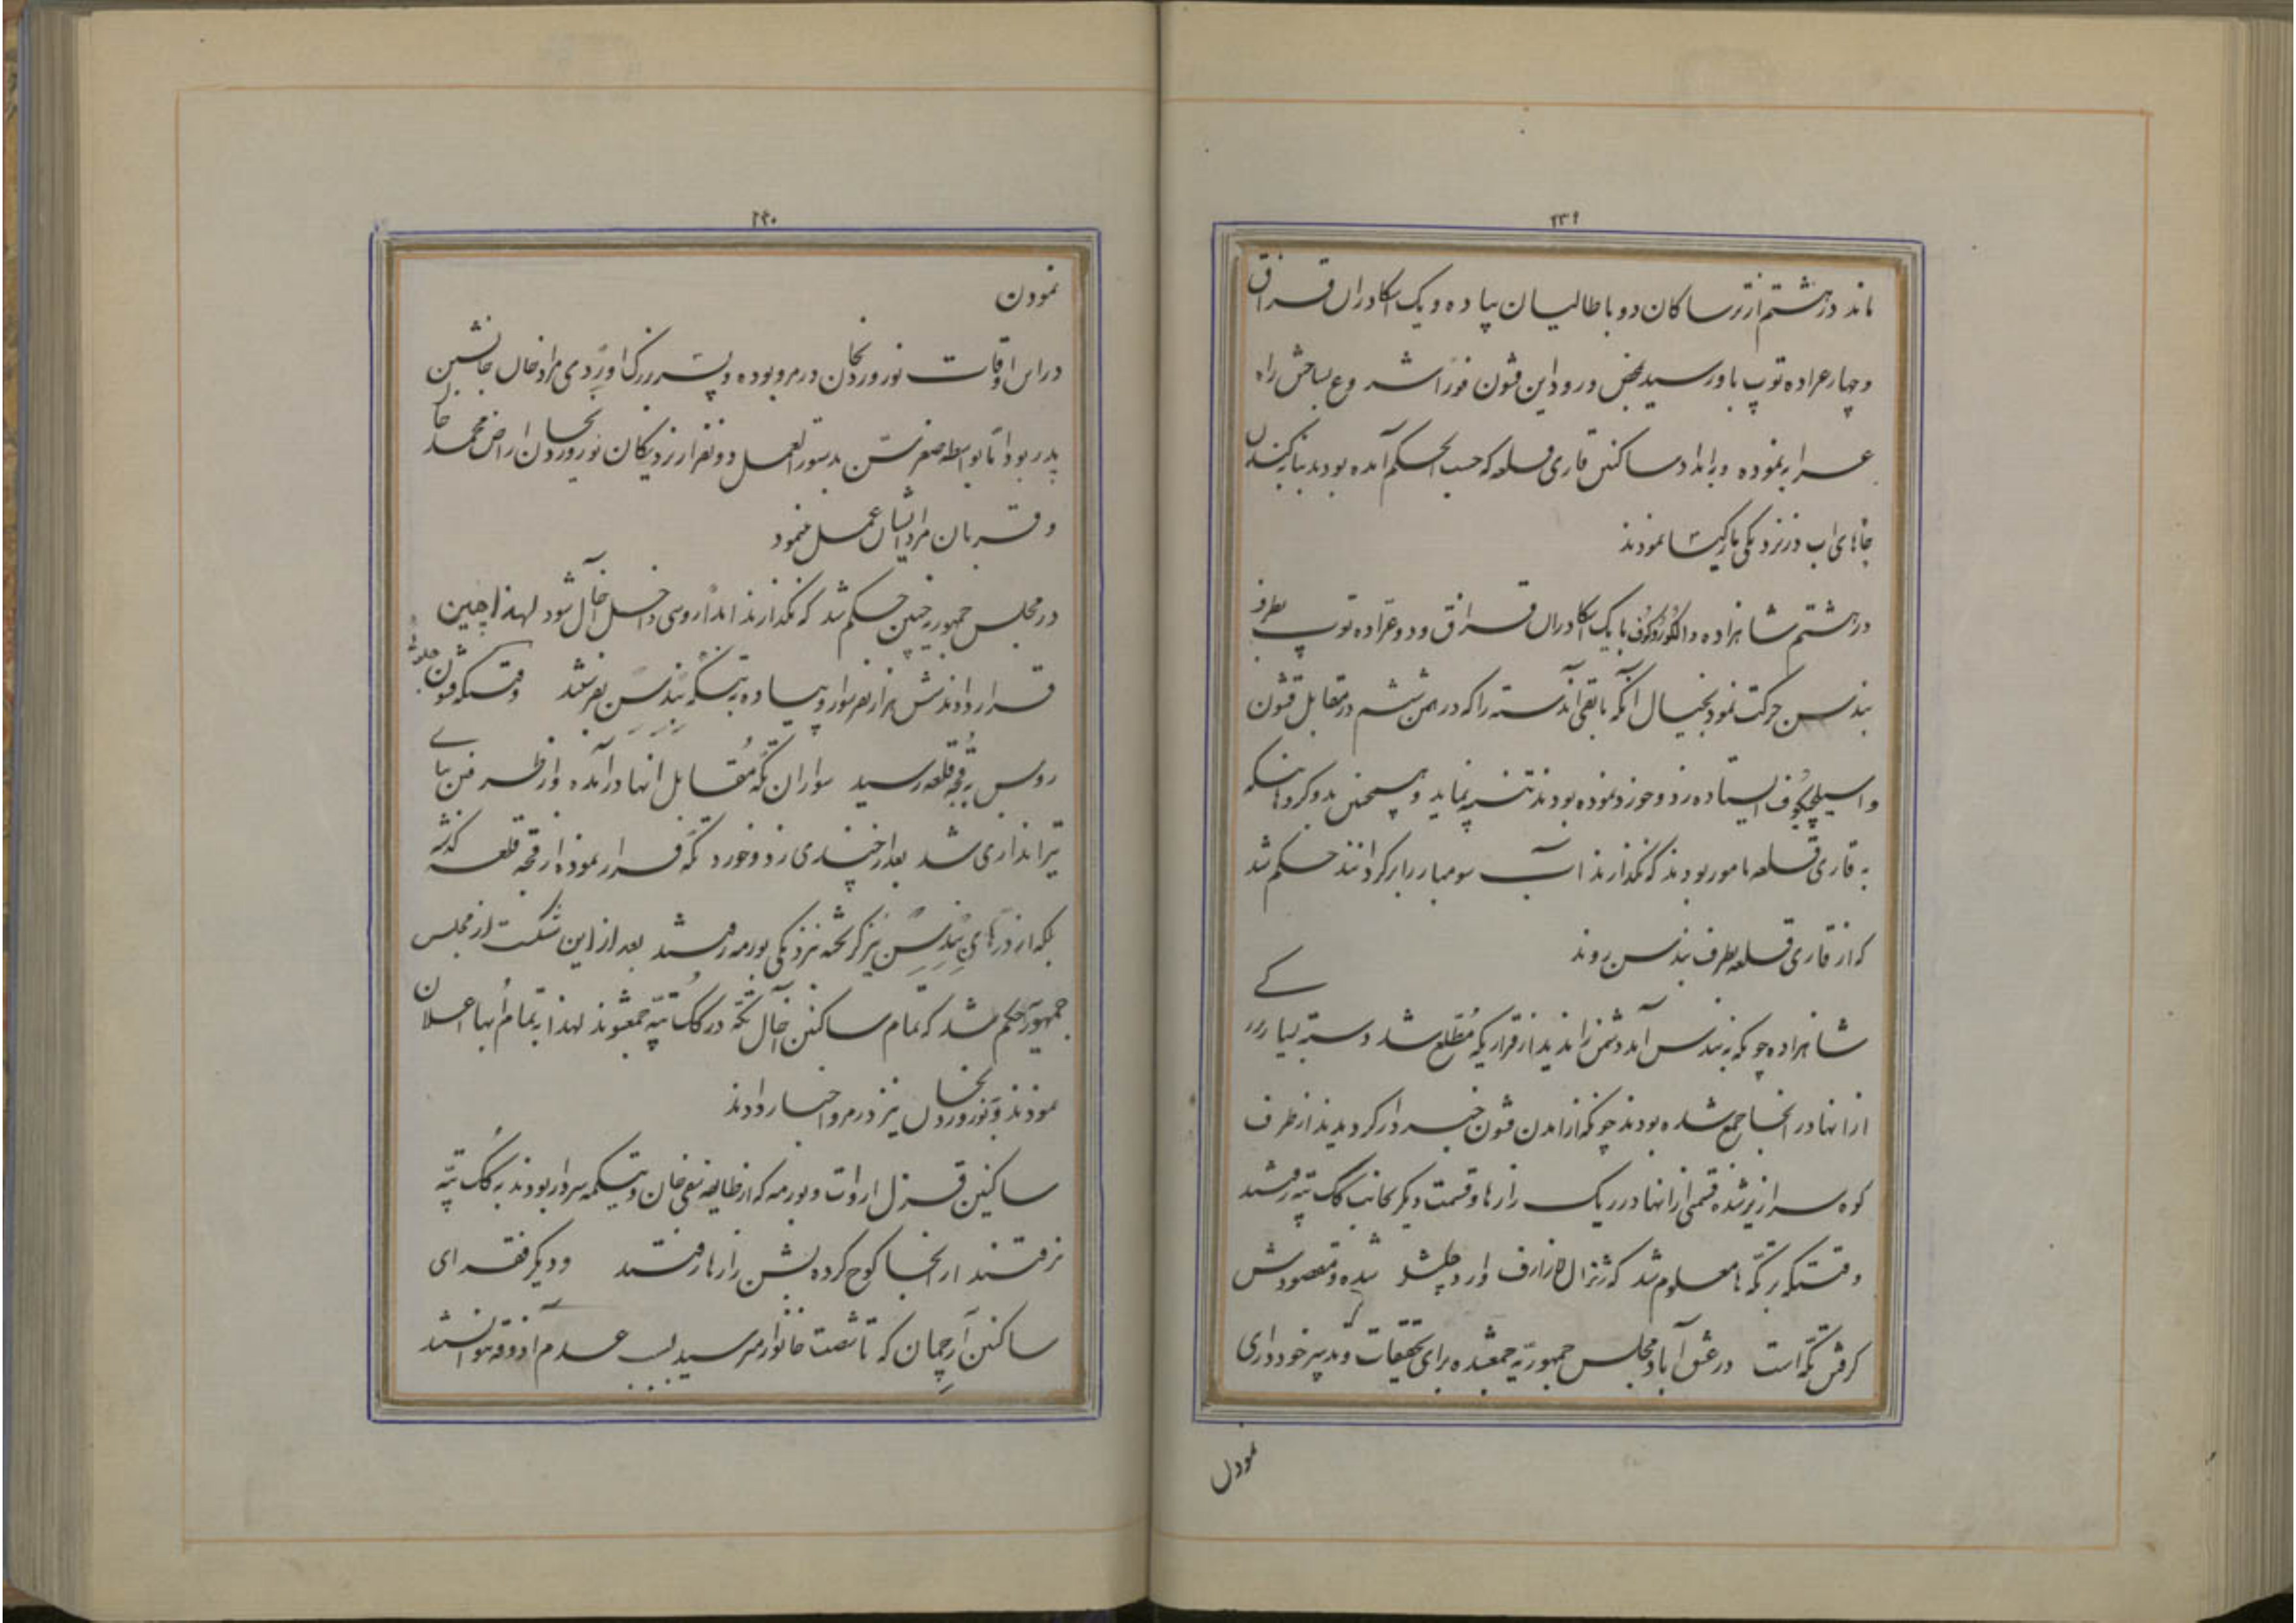 ۲۳۹
ماند در هشتم از ترساکان دو باطالیان پیاده و یک اسکادران قزاق
و چهار عراده توپ باو رسید بمحض ورود این قشون فوراً شروع بساختن راه
عرابه نموده و بامداد ساکنین قاری قلعه که حسب الحکم آمده بودند بنا بکندن
چاههای اب در نزدیکی نمودند
در هشتم شاهزاده دالگوروکوف با یک اسکادران قزاق و دو عراده توپ بطرف
بندسن حرکت نمود بخیال آنکه باقی آندسته را که در همین ششم در مقابل قشون
واسیلچیکوف ایستاده زد و خورد نموده بودند تنبیه نماید و همچنین بدو گروهانیکه
به قاری قلعه مامور بودند که نگذارند آب سومبار را برگردانند حکم شد
که از قاری قلعه بطرف بندسن روند
شاهزاده چونکه به بندسن آمد دشمن را ندید از قراریکه مطلع شد دسته بسیار
از انها در انجا جمع شده بودند چونکه از امدن قشون خبردار گردیدند از طرف
کوه سرازیر شده قسمتی از انها در ریک زارها و قسمت دیگر بجانب گک تپه رفتند
وقتیکه بر تکه ها معلوم شد که ژنرال لازارف وارد چکشلر شده و مقصودش
گرفتن تکه است در عشق آباد مجلس جمهوریه جمعشده برای تحقیقات و تدبیر خودداری
نمودن
۲۴۰
نمودن
در این اوقات نوروردیخان در مرو بوده و پسر بزرگ اوردی مرادخان جانشین
پدر بود اما بواسطه صغر سن بدستور العمل دو نفر از نزدیکان نوروردیخان اراض محمدخان
و قربان مرادایشان عمل مینمود
در مجلس جمهوریه چنین حکم شد که نگذارند ابداً روسی داخل آخال شود لهذا چنین
قرار دادند شش هزار نفر سوار و پیاده به تنگه بندسن بفرستند وقتیکه قشون جلو
روس به قجه قلعه رسید سواران تکه مقابل انها درآمده و از طرفین بنای
تیراندازی شد بعد از چندی زد و خورد تکه فرار نموده از قجه قلعه گذشته
بلکه از درهای بندسن نیز گریخته نزدیکی بورمه رفتند بعد از این شکست از مجلس
جمهوریه حکم شد که تمام ساکنین آخال تکه در گک تپه جمعشوند لهذا به تمام اُبها اعلان
نمودند و نوروردیخان نیز در مرو اخبار دادند
ساکنین قزل اروات و بورمه که از طایفه صفی خان و تیکمه سردار بودند به گک تپه
نرفتند از انجا کوچ کرده بشن زارها رفتند و دیگر فقرای
ساکنین آرچمان که تا شصت خانوار میرسید بسبب عدم آذوقه نتوانستند